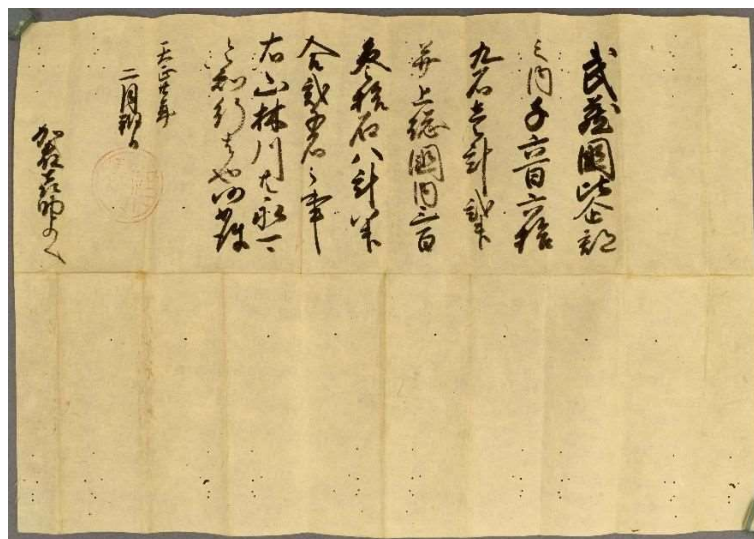 武蔵國比企郡
之内千六百六拾
九石壱斗弐升
并上総國内三百
参拾石八斗八升
合弐千石之事
右山林川共永可
令知行者也仍如件
天正廿年
二月朔日
加藤喜助とのへ